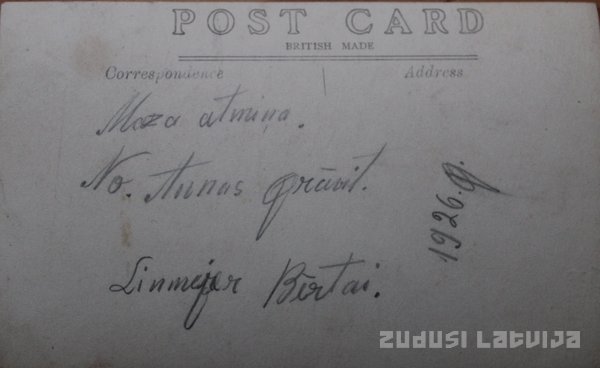 POST CARD
BRITISH MADE
Correspondence Address
Maza atmiņa.
No. Annas Grāvit.
1926.g.
Linmejer Bērtai.
ZUDUSI LATVIJA